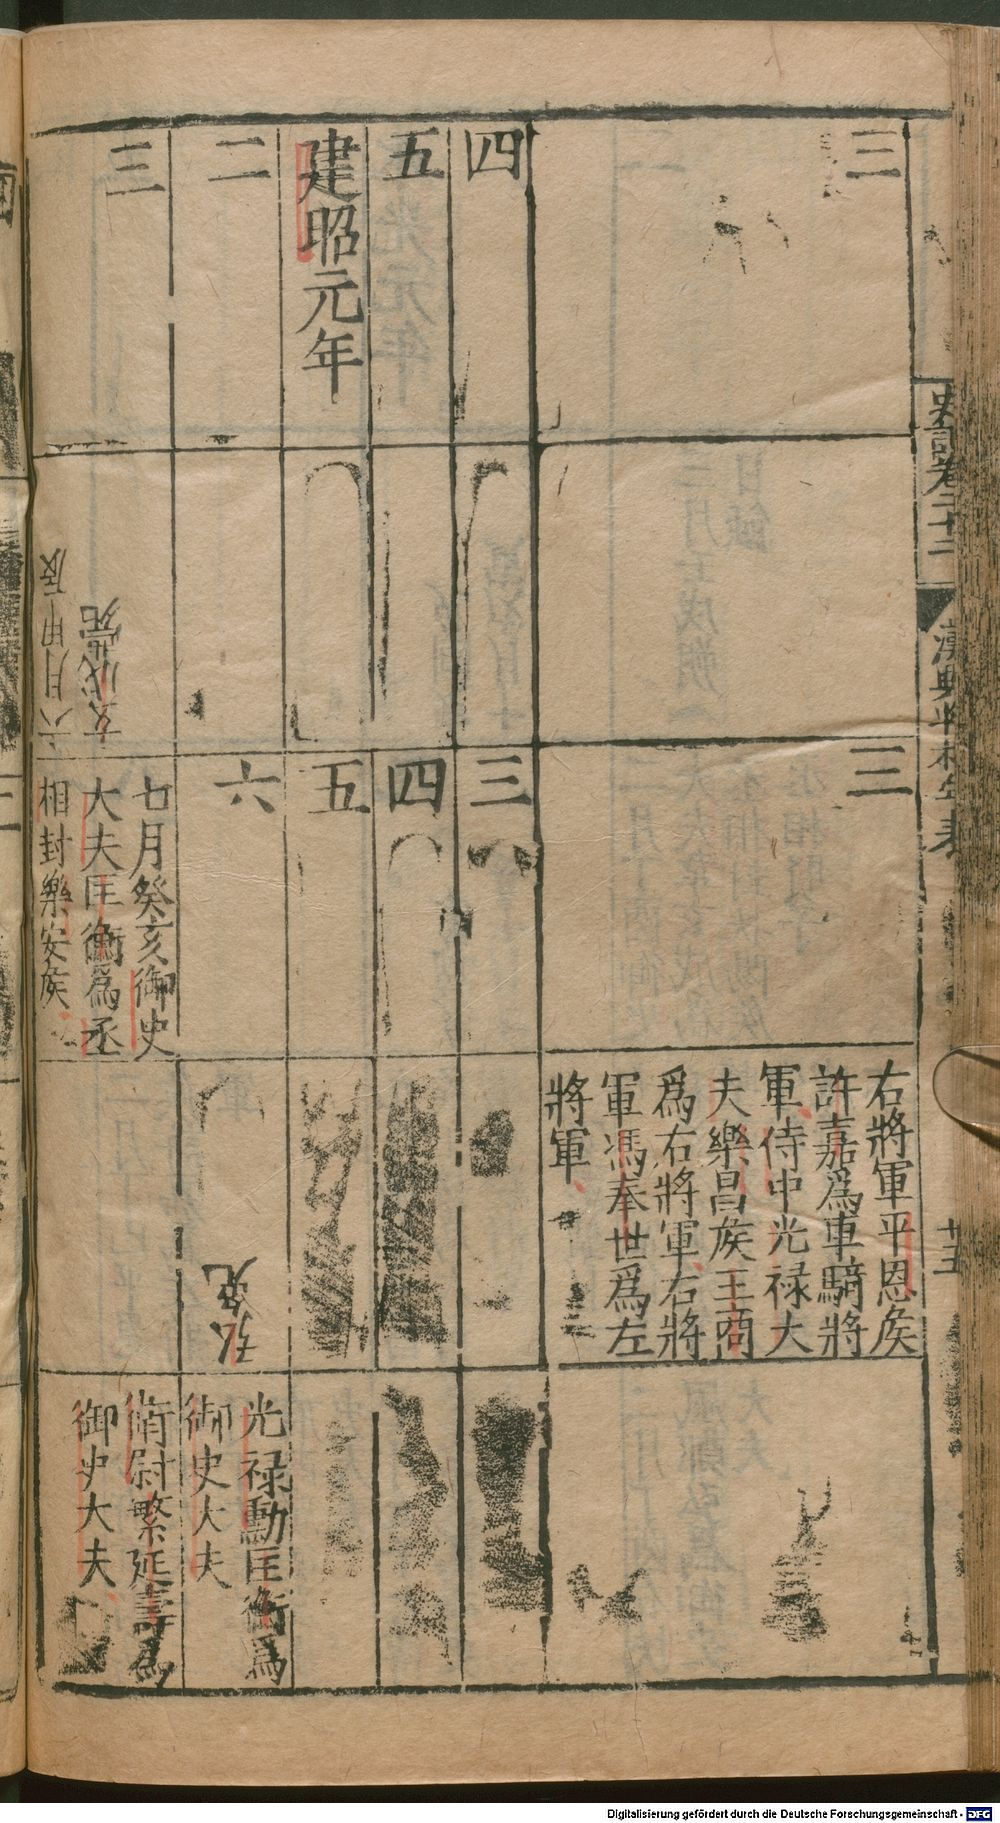 史記卷二十二
漢興將相年表
十五
三
三
右將軍平恩侯
許嘉爲車騎將
軍侍中光祿大
夫樂昌侯王商
爲右將軍右將
軍馮奉世爲左
將軍
四
三
五
四
建昭元年
五
二
六
弘免
光祿勳匡衡爲
御史大夫
三
玄成薨
六月甲辰
七月癸亥御史
大夫匡衡爲丞
相封樂安侯
衛尉繁延壽爲
御史大夫
Digitalisierung gefördert durch die Deutsche Forschungsgemeinschaft - DFG